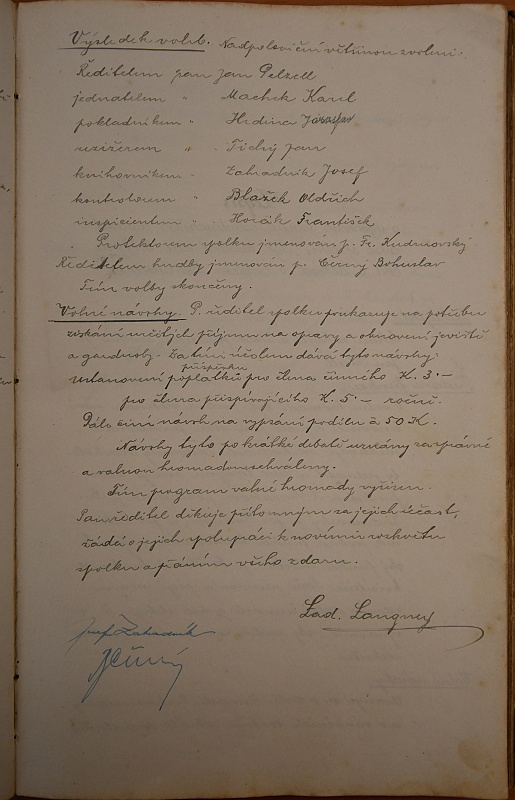 Výsledek voleb. Nadpoloviční většinou zvoleni:
Ředitelem pan Jan Pelzell
jednatelem " Machek Karel
pokladníkem " Hrdina Jaroslav
režižérem " Tichý Jan
knihovníkem " Zahradník Josef
kontrolorem " Blažek Oldřich
inspicientem " Horák František
Protektorem spolku jmenován p. Fr. Kudrnovský
Ředitelem hudby jmenován p. Černý Bohuslav
Tím volby skončeny.
Volné návrhy. P. ředitel spolku poukazuje na potřebu
získání určitých příjmů na opravy a obnovení jeviště
a garderoby. Za tím účelem dává tyto návrhy:
příspěvku
ustanovení poplatků pro člena činného K. 3.–
pro člena přispívajícího K. 5.– ročně.
Dále činí návrh na vypsání podílů à 50 K.
Návrhy tyto po krátké debatě uznány za správné
a valnou hromadou schváleny.
Tím program valné hromady vyřízen.
Pan ředitel děkuje přítomným za jejich účast,
žádá o jejich spolupráci k novému rozkvětu
spolku a přáním všeho zdaru.
Lad. Langney
Josef Zahradník
JČerný